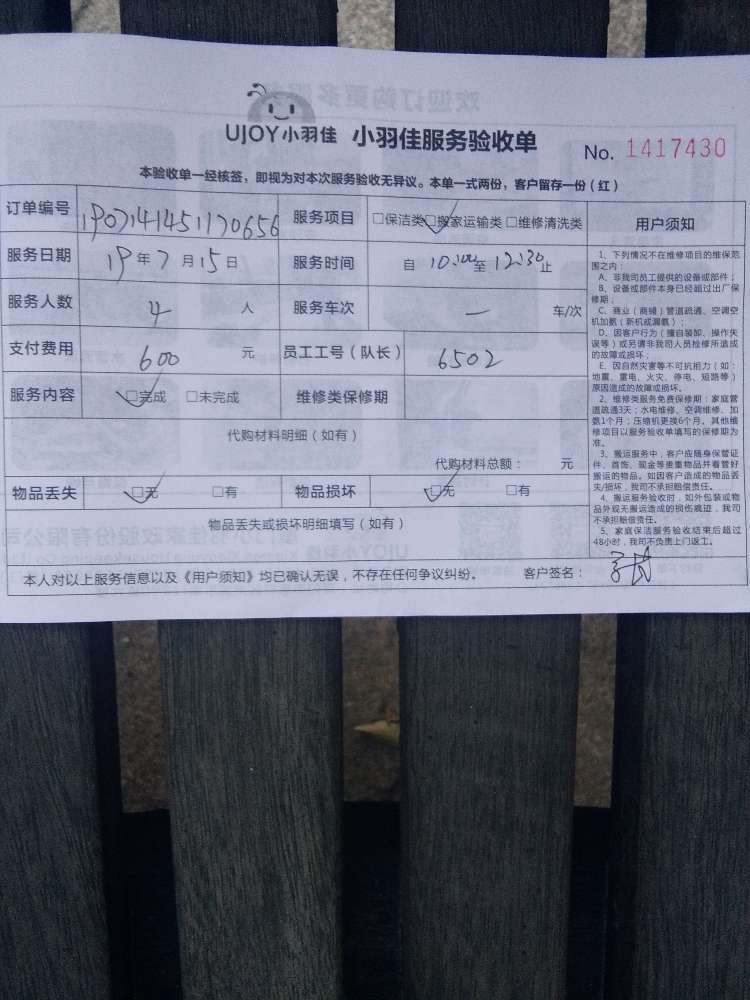 UJOY小羽佳 小羽佳服务验收单
No. 1417430
本验收单一经核签，即视为对本次服务验收无异议。本单一式两份，客户留存一份（红）
订单编号 190714145117065​6 服务项目 □保洁类 □搬家运输类 □维修清洗类
服务日期 19年7月15日 服务时间 自10:00至12:30止
服务人数 4 人 服务车次 一 车/次
支付费用 600 元 员工工号（队长） 6502
服务内容 □完成 □未完成 维修类保修期
代购材料明细（如有）
代购材料总额： 元
物品丢失 □无 □有 物品损坏 □无 □有
物品丢失或损坏明细填写（如有）
本人对以上服务信息以及《用户须知》均已确认无误，不存在任何争议纠纷。 客户签名：
用户须知
1、下列情况不在维修项目的维保范
围之内：
A、非我司员工提供的设备或部件；
B、设备或部件本身已经超过出厂保
修期；
C、商业（商铺）管道疏通、空调空
机加氨（新机或漏氨）；
D、因客户行为（擅自装卸、操作失
误等）或另请非我司人员检修所造成
的故障或损坏；
E、因自然灾害等不可抗力（如：
地震、雷电、火灾、停电、短路等）
原因造成的故障或损坏。
2、维修类服务免费保修期：家庭管
道疏通3天；水电维修、空调维修、加
氨1个月；压缩机更换6个月。其他维
修项目以服务验收单填写的保修期为
准。
3、搬运服务中，客户应随身保管证
件、首饰、现金等贵重物品并看管好
搬运的物品。如因客户造成的物品丢
失/损坏，我司不承担赔偿责任。
4、搬运服务验收时，如外包装或物
品外观无搬运造成的损伤痕迹，我司
不承担赔偿责任。
5、家庭保洁服务验收结束后超过
48小时，我司不负责上门返工。